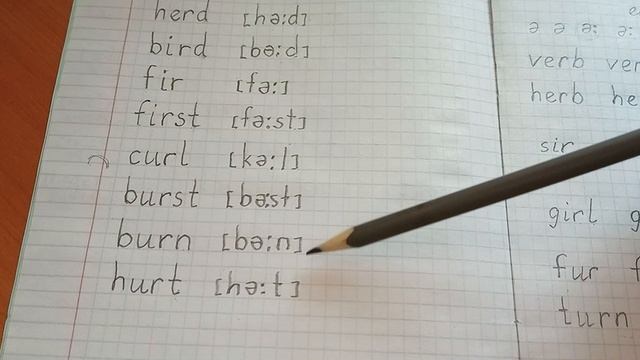 herd [hə:d]
bird [bə:d]
fir [fə:]
first [fə:st]
curl [kə:l]
burst [bə:st]
burn [bə:n]
hurt [hə:t]
ə ə ə: ə:
verb ver
herb he
sir
girl g
fur f
turn